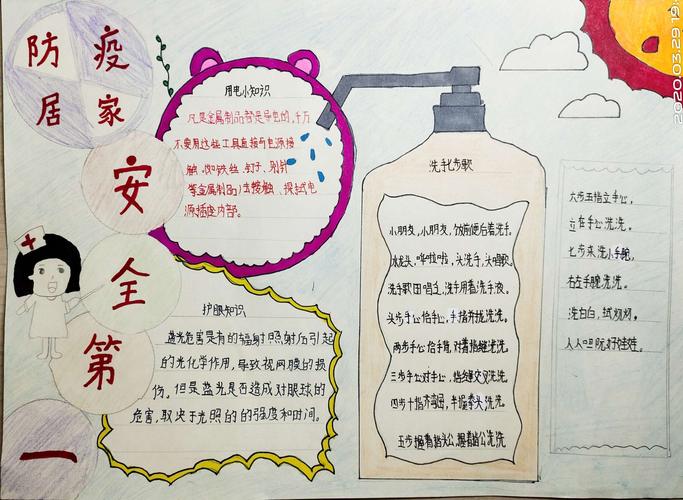 防疫
居家
安
全
第
一
用电小知识
凡是金属制品都是导电的,千万
不要用这些工具直接与电源接
触,如铁丝、钉子、别针
等金属制品)去接触、探试电
源插座内部。
护眼知识
蓝光危害是有的辐射照射后引起
的光化学作用,导致视网膜的损
伤。但是蓝光是否造成对眼球的
危害,取决于光照的的强度和时间。
洗手七步歌
小朋友,小朋友,饭前便后着洗手。
水龙头,哗啦啦,头洗手,头唱歌。
洗手歌田唱立,洗手用着洗手液。
头步手心恰手心,手指并拢洗洗。
两步手心恰手背,对着指缝洗洗。
三步手心对手心,指缝交叉洗洗。
四步十指齐弯曲,半握拳头洗洗
五步握着指头公,握着指公洗洗
六步五指立手心,
立在手心洗洗。
七步来洗小手腕,
右左手腕洗洗。
洗白白,拭
人人口阮好娃娃。
2020.03.29 19: